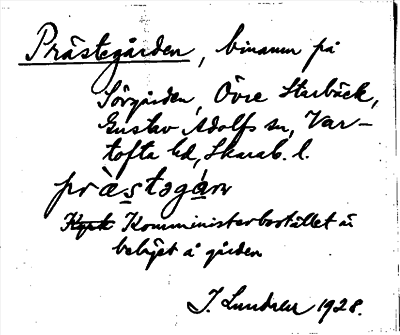 Prästegården, binamn på
Sörgården, Övre Starbäck,
Gustav Adolfs sn, Var-
tofta hd, Skarab. l.
prà̀stəgáṙn
Komministerbostället är
beläget å gården
J. Lundahl 1928.